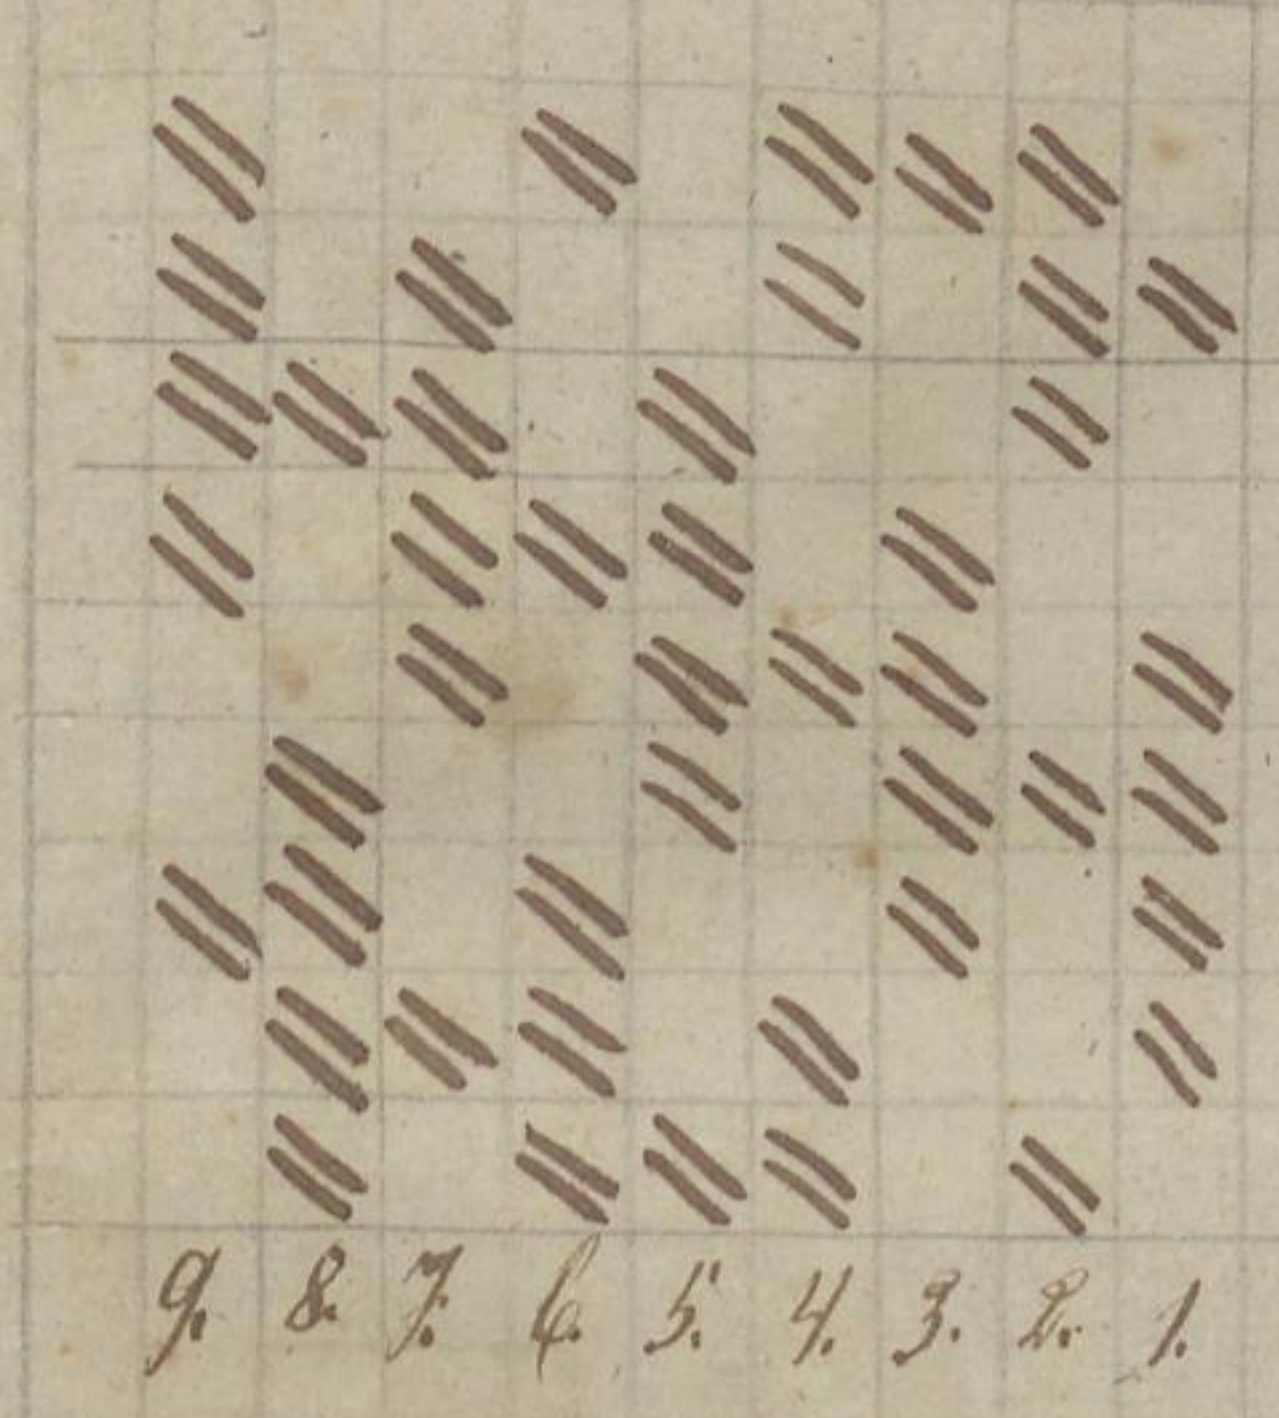 9. 8. 7. 6. 5. 4. 3. 2. 1.